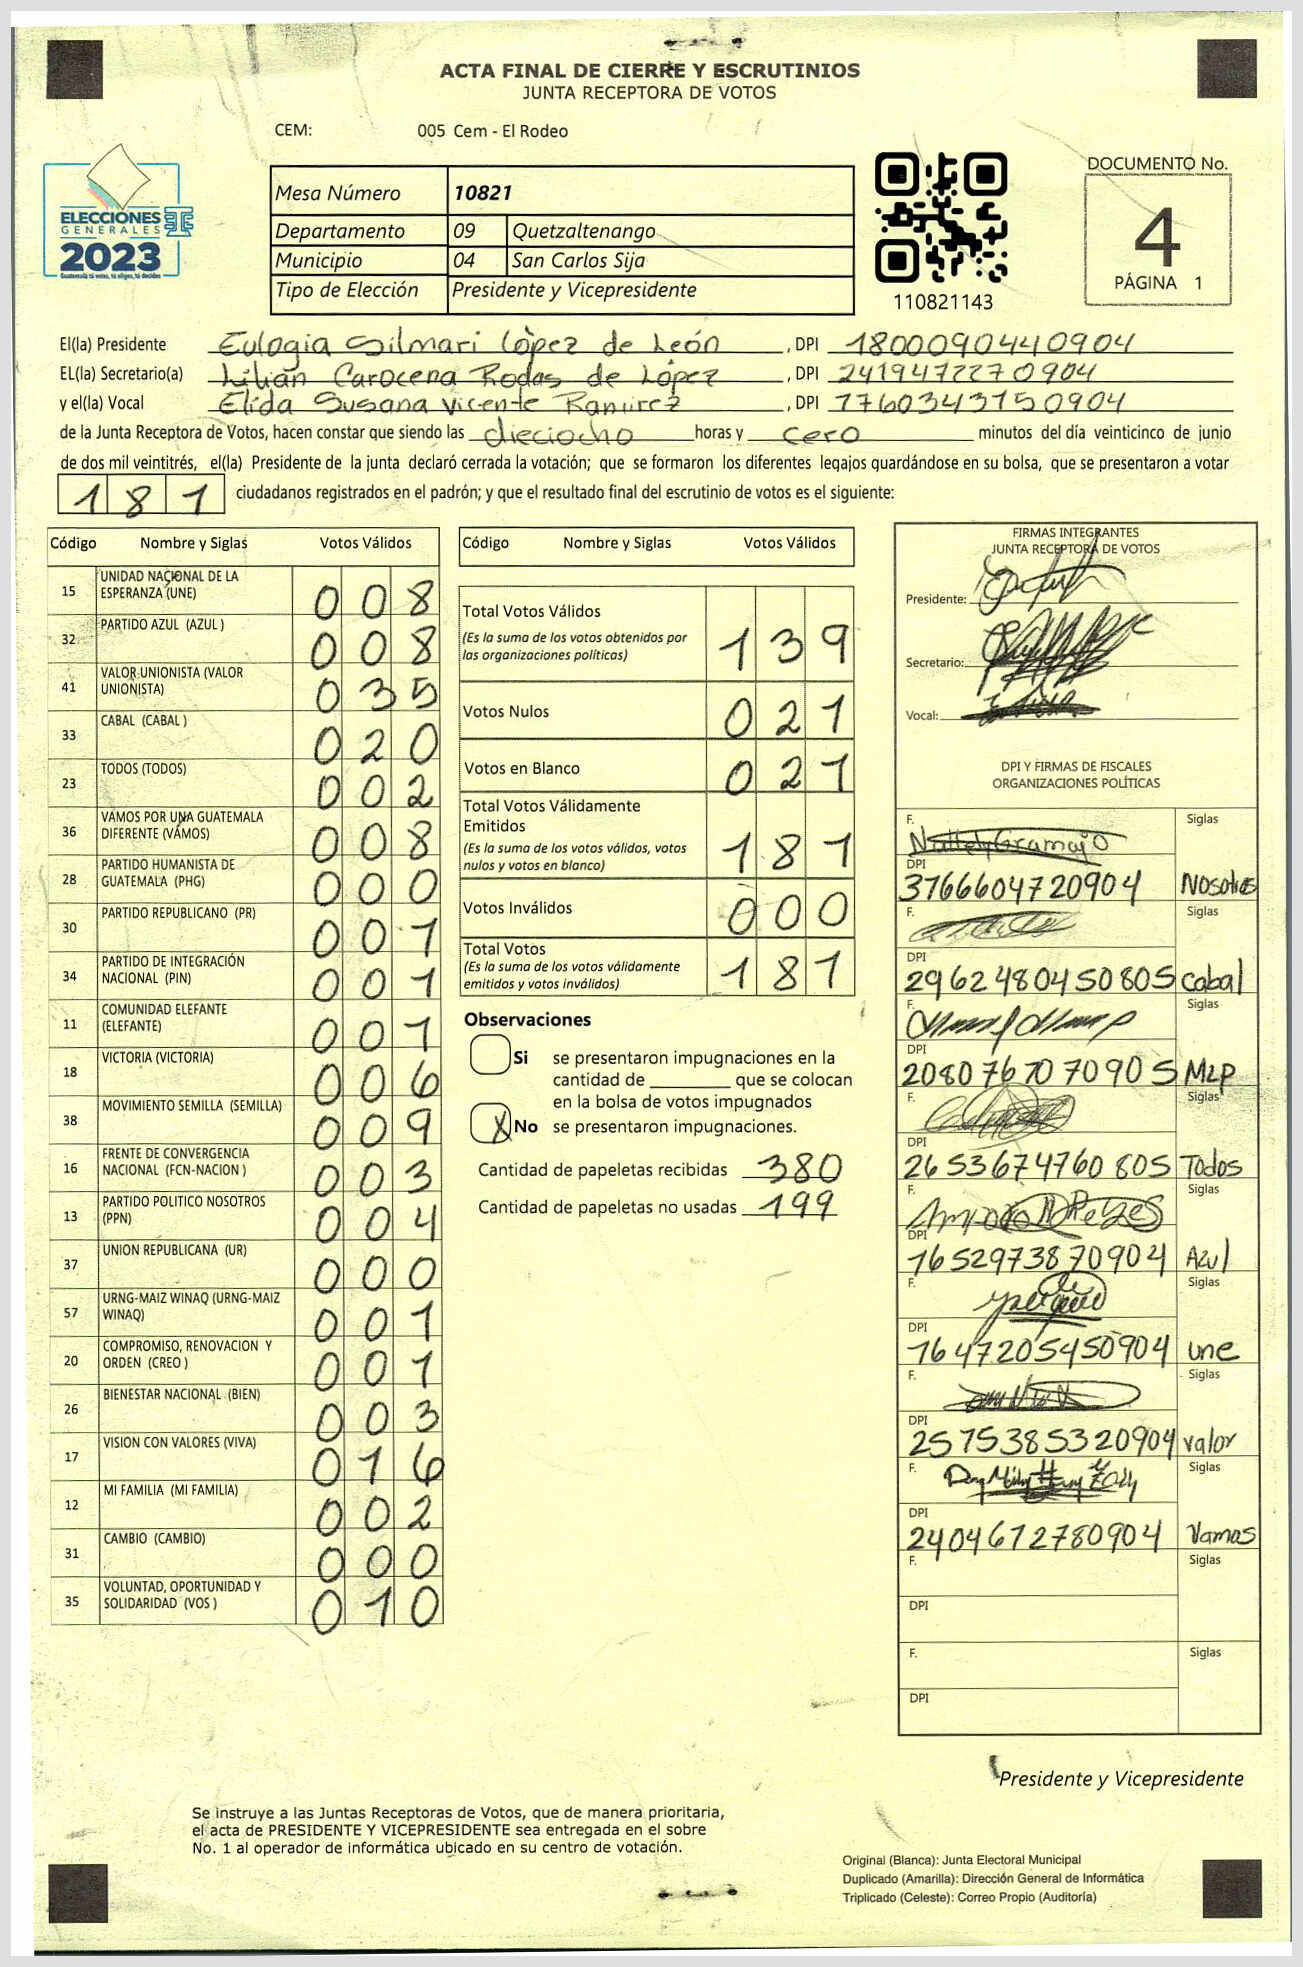 ACTA FINAL DE CIERRE Y ESCRUTINIOS
JUNTA RECEPTORA DE VOTOS
CEM: 005 Cem - El Rodeo
ELECCIONES
GENERALES
2023
Guatemala tú votas, tú eliges, tú decides
Mesa Número 10821
Departamento 09 Quetzaltenango
Municipio 04 San Carlos Sija
Tipo de Elección Presidente y Vicepresidente
110821143
DOCUMENTO No.
4
PÁGINA 1
El(la) Presidente Eulogia Silmari López de León , DPI 1800090440904
EL(la) Secretario(a) Lilian Carocena Rodas de López , DPI 2419472270904
y el(la) Vocal Elida Susana Vicente Ramirez , DPI 1760343150904
de la Junta Receptora de Votos, hacen constar que siendo las dieciocho horas y cero minutos del día veinticinco de junio
de dos mil veintitrés, el(la) Presidente de la junta declaró cerrada la votación; que se formaron los diferentes legajos guardándose en su bolsa, que se presentaron a votar
181 ciudadanos registrados en el padrón; y que el resultado final del escrutinio de votos es el siguiente:
Código Nombre y Siglas Votos Válidos
15 UNIDAD NACIONAL DE LA ESPERANZA (UNE) 008
32 PARTIDO AZUL (AZUL ) 008
41 VALOR UNIONISTA (VALOR UNIONISTA) 035
33 CABAL (CABAL ) 020
23 TODOS (TODOS) 002
36 VAMOS POR UNA GUATEMALA DIFERENTE (VAMOS) 008
28 PARTIDO HUMANISTA DE GUATEMALA (PHG) 000
30 PARTIDO REPUBLICANO (PR) 001
34 PARTIDO DE INTEGRACIÓN NACIONAL (PIN) 001
11 COMUNIDAD ELEFANTE (ELEFANTE) 001
18 VICTORIA (VICTORIA) 006
38 MOVIMIENTO SEMILLA (SEMILLA) 009
16 FRENTE DE CONVERGENCIA NACIONAL (FCN-NACION ) 003
13 PARTIDO POLITICO NOSOTROS (PPN) 004
37 UNION REPUBLICANA (UR) 000
57 URNG-MAIZ WINAQ (URNG-MAIZ WINAQ) 001
20 COMPROMISO, RENOVACION Y ORDEN (CREO ) 001
26 BIENESTAR NACIONAL (BIEN) 003
17 VISION CON VALORES (VIVA) 016
12 MI FAMILIA (MI FAMILIA) 002
31 CAMBIO (CAMBIO) 000
35 VOLUNTAD, OPORTUNIDAD Y SOLIDARIDAD (VOS ) 010
Código Nombre y Siglas Votos Válidos
Total Votos Válidos 139
(Es la suma de los votos obtenidos por
las organizaciones políticas)
Votos Nulos 021
Votos en Blanco 021
Total Votos Válidamente
Emitidos 181
(Es la suma de los votos válidos, votos
nulos y votos en blanco)
Votos Inválidos 000
Total Votos 181
(Es la suma de los votos válidamente
emitidos y votos inválidos)
Observaciones
Si se presentaron impugnaciones en la
cantidad de ________ que se colocan
en la bolsa de votos impugnados
X No se presentaron impugnaciones.
Cantidad de papeletas recibidas 380
Cantidad de papeletas no usadas 199
FIRMAS INTEGRANTES
JUNTA RECEPTORA DE VOTOS
Presidente:
Secretario:
Vocal:
DPI Y FIRMAS DE FISCALES
ORGANIZACIONES POLÍTICAS
F. Siglas
DPI
3766604720904 Nosotros
F. Siglas
DPI
2962480450805 Cabal
F. Siglas
DPI
2080767070905 MLP
F. Siglas
DPI
2653674760805 Todos
F. Siglas
DPI
1652973870904 Azul
F. Siglas
DPI
1647205450904 une
F. Siglas
DPI
2575385320904 valor
F. Siglas
DPI
2404672780904 Vamos
F. Siglas
DPI
F. Siglas
DPI
Presidente y Vicepresidente
Se instruye a las Juntas Receptoras de Votos, que de manera prioritaria,
el acta de PRESIDENTE Y VICEPRESIDENTE sea entregada en el sobre
No. 1 al operador de informática ubicado en su centro de votación.
Original (Blanca): Junta Electoral Municipal
Duplicado (Amarilla): Dirección General de Informática
Triplicado (Celeste): Correo Propio (Auditoría)